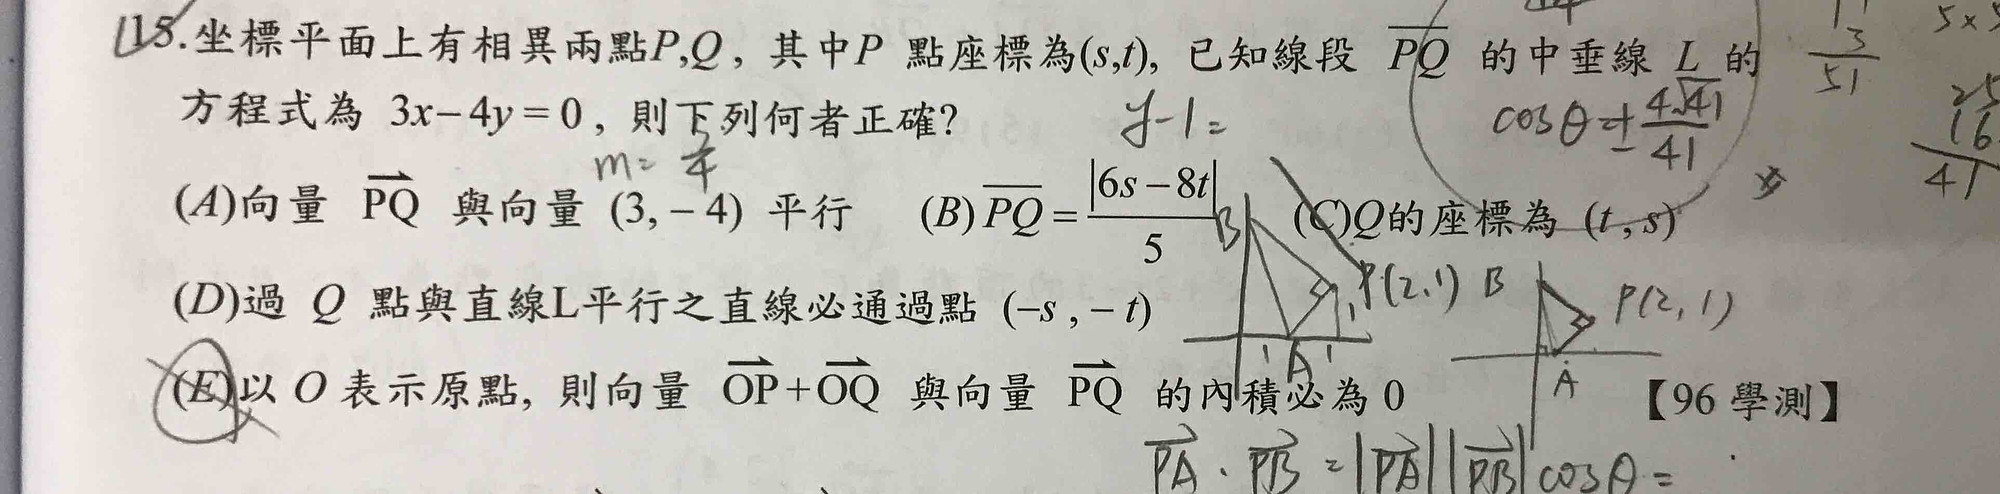 15.坐標平面上有相異兩點P,Q, 其中P 點座標為(s,t), 已知線段 PQ 的中垂線 L 的
方程式為 3x-4y=0, 則下列何者正確?
y-1=
cosθ=±4√41/41
m=3/4
3
51
5×5
25
16
41
(A)向量 PQ 與向量 (3,-4) 平行 (B)PQ=|6s-8t|/5 (C)Q的座標為 (t,s)
(D)過 Q 點與直線L平行之直線必通過點 (-s,-t)
B P(2,1) A
B P(2,1) A
(E)以 O 表示原點, 則向量 OP+OQ 與向量 PQ 的內積必為 0 【96 學測】
PA·PB=|PA||PB|cosθ=